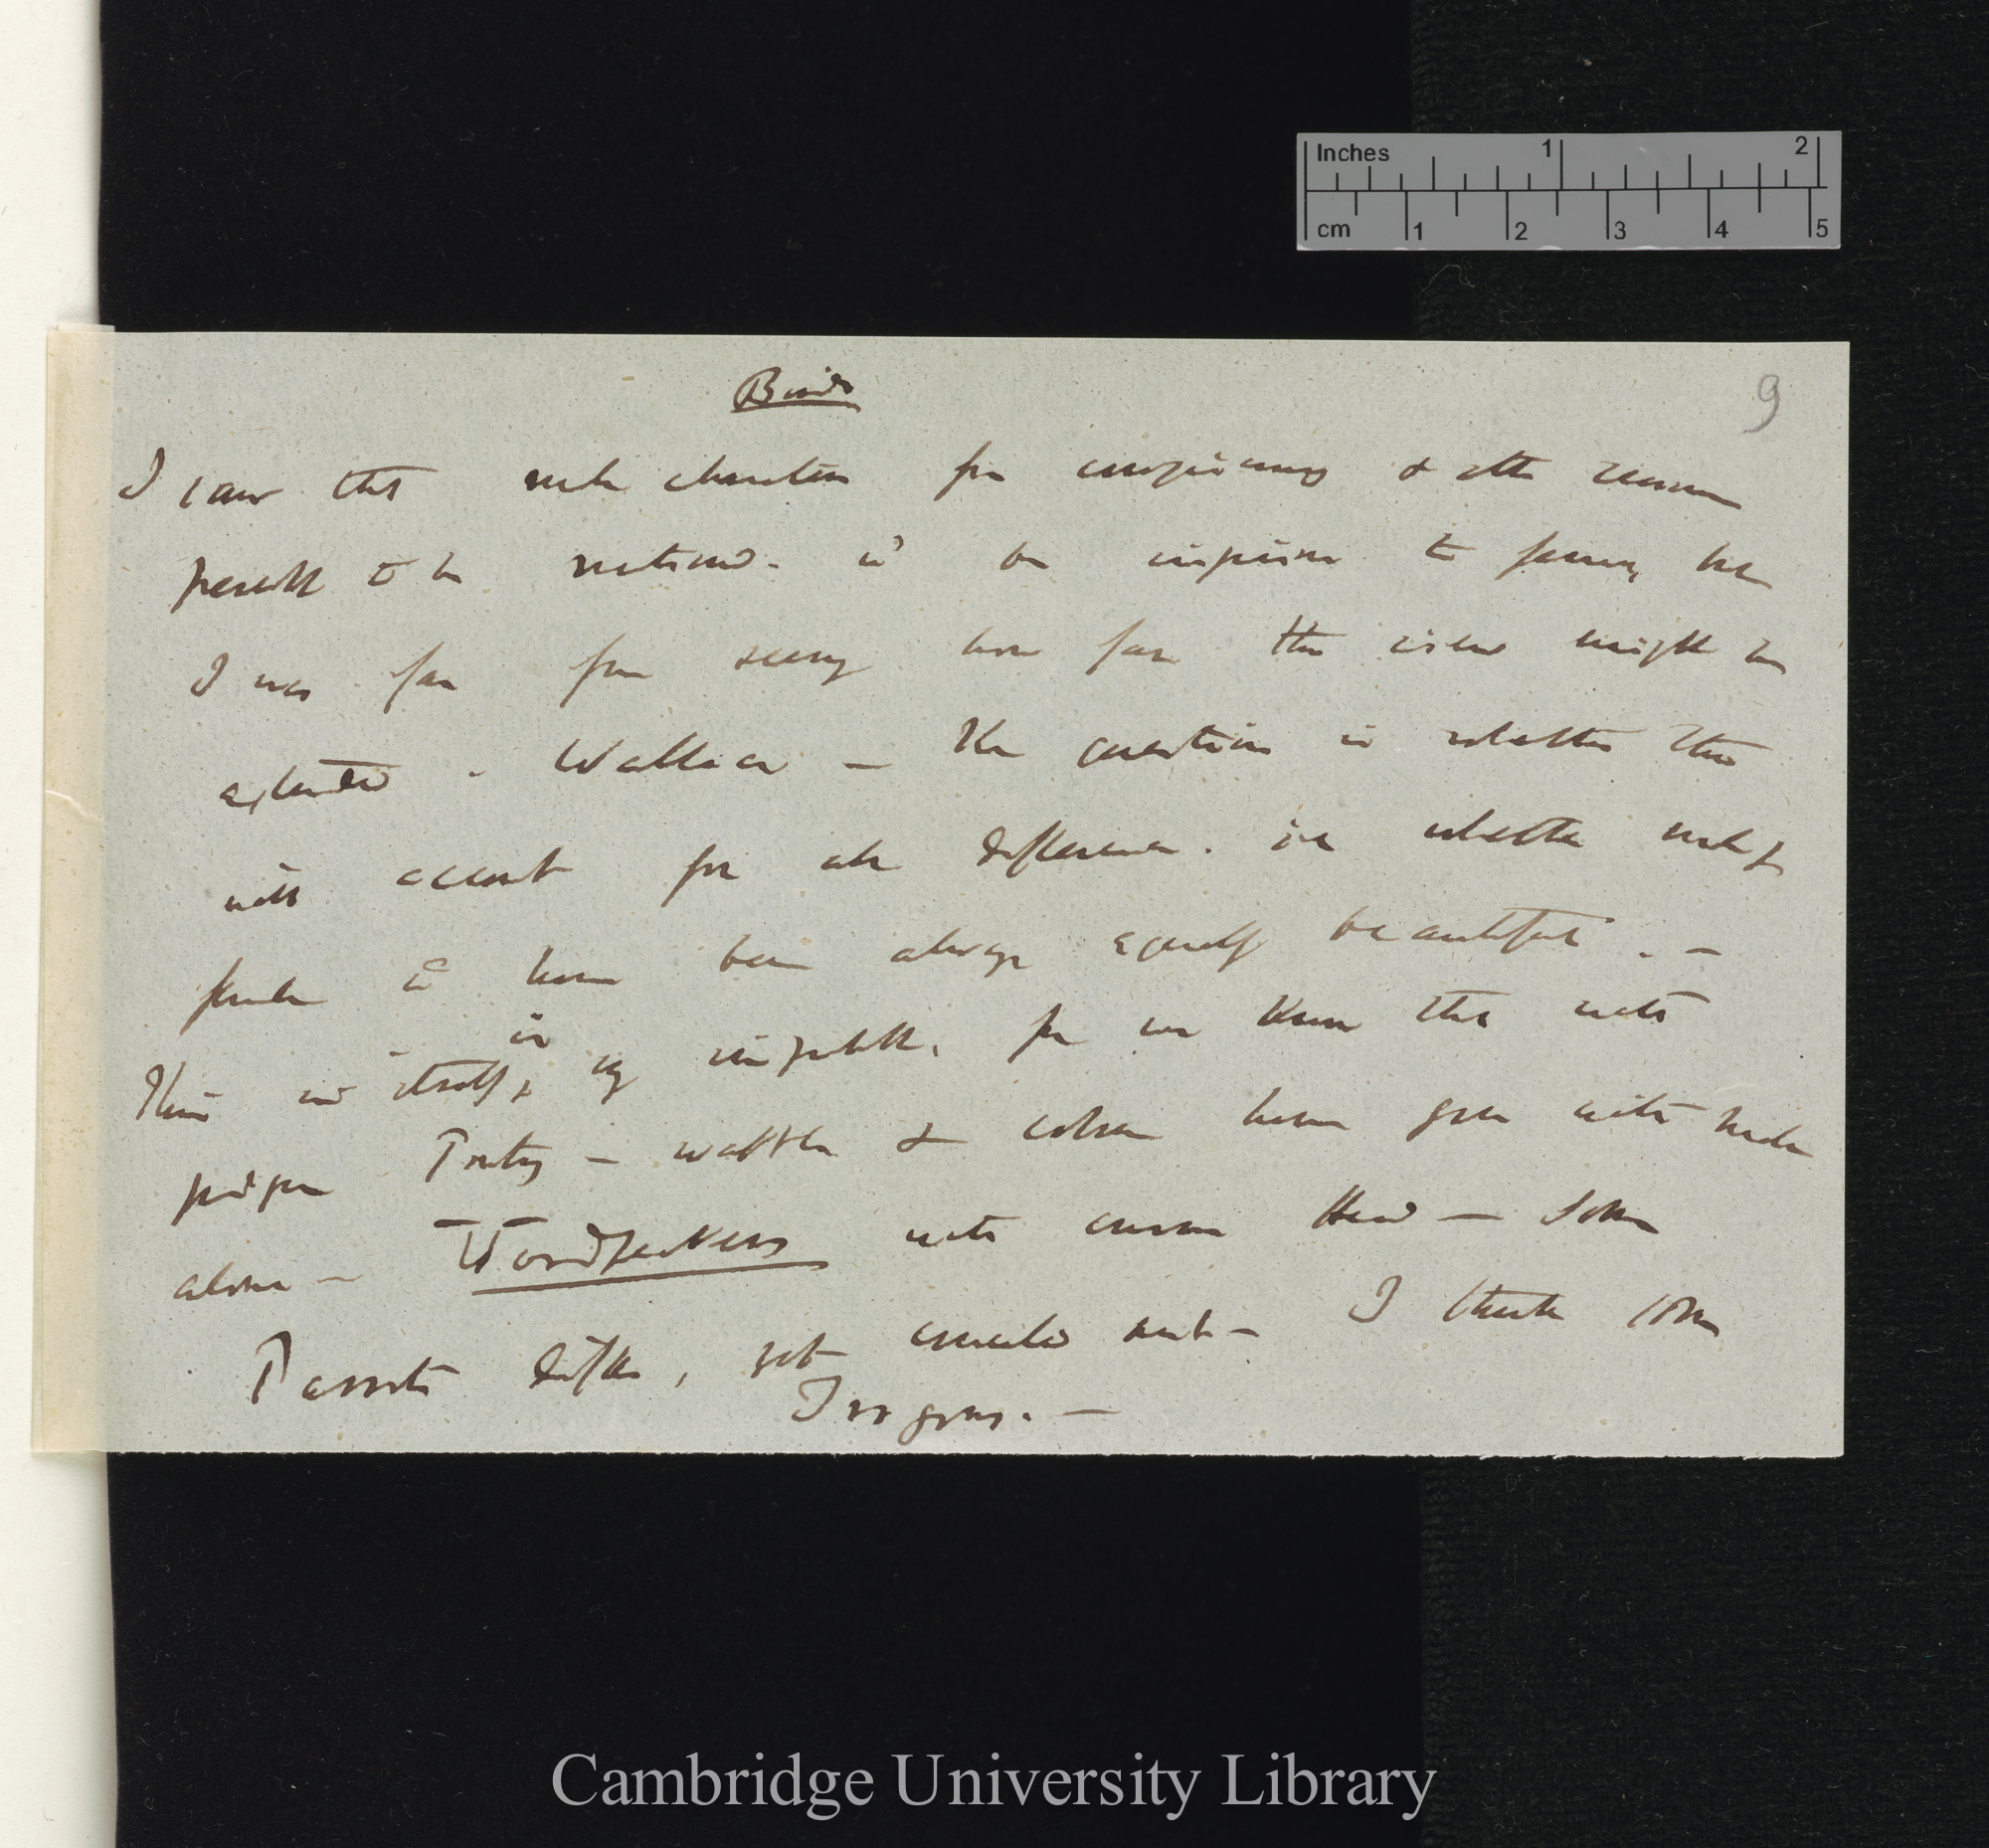 Inches 1 2
cm 1 2 3 4 5
Birds
9
I saw that male characters from conspicuousness & other reasons
peculiar to be would be injurious to females, but
I was far from seeing how far the view might be
extended. Wallace — The question is whether this
will account for all difference. ie whether male &
female would have been always equally beautiful. —
This in itself, is very improbable, for we know that with
pidgeon Pouting — wattle & colour have gone with male
alone — Woodpeckers with crown Head — Some
Parrots differ, yet concealed nest — I think some
Trogons. —
Cambridge University Library